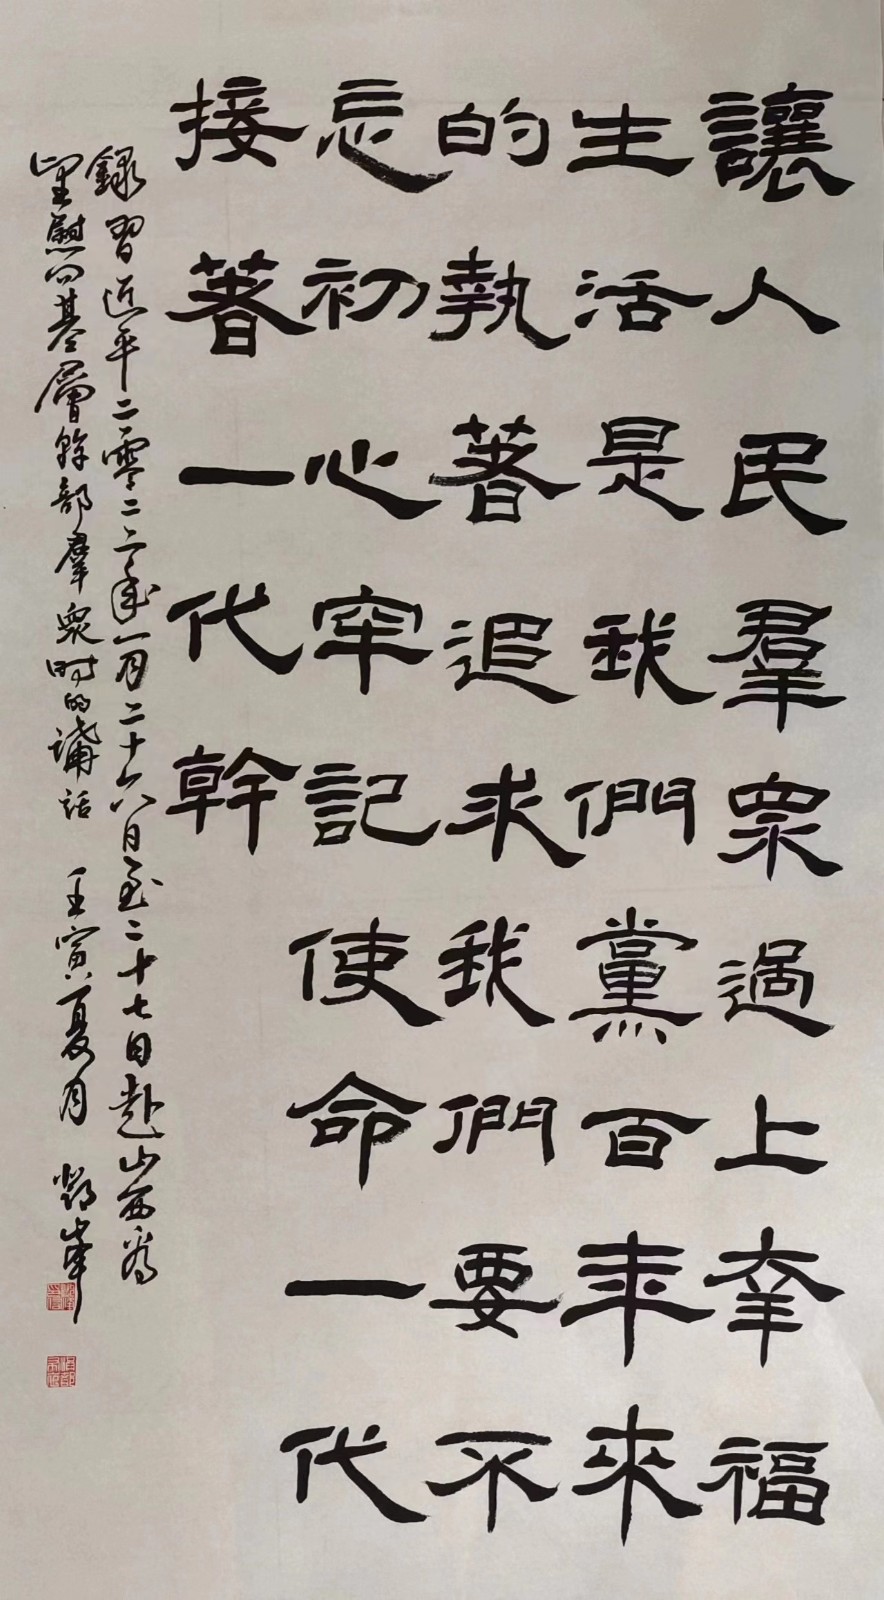 讓人民羣眾過上幸福
生活是我們黨百年來
的執著追求我們要不
忘初心牢記使命一代
接著一代幹
錄習近平二零二二年一月二十六日至二十七日赴山西看
望慰問基層幹部羣眾時的講話 壬寅夏月 鄧峰